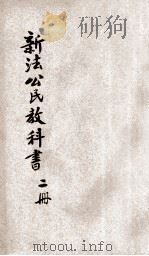 新法公民教科書
二冊
www.toutu.info